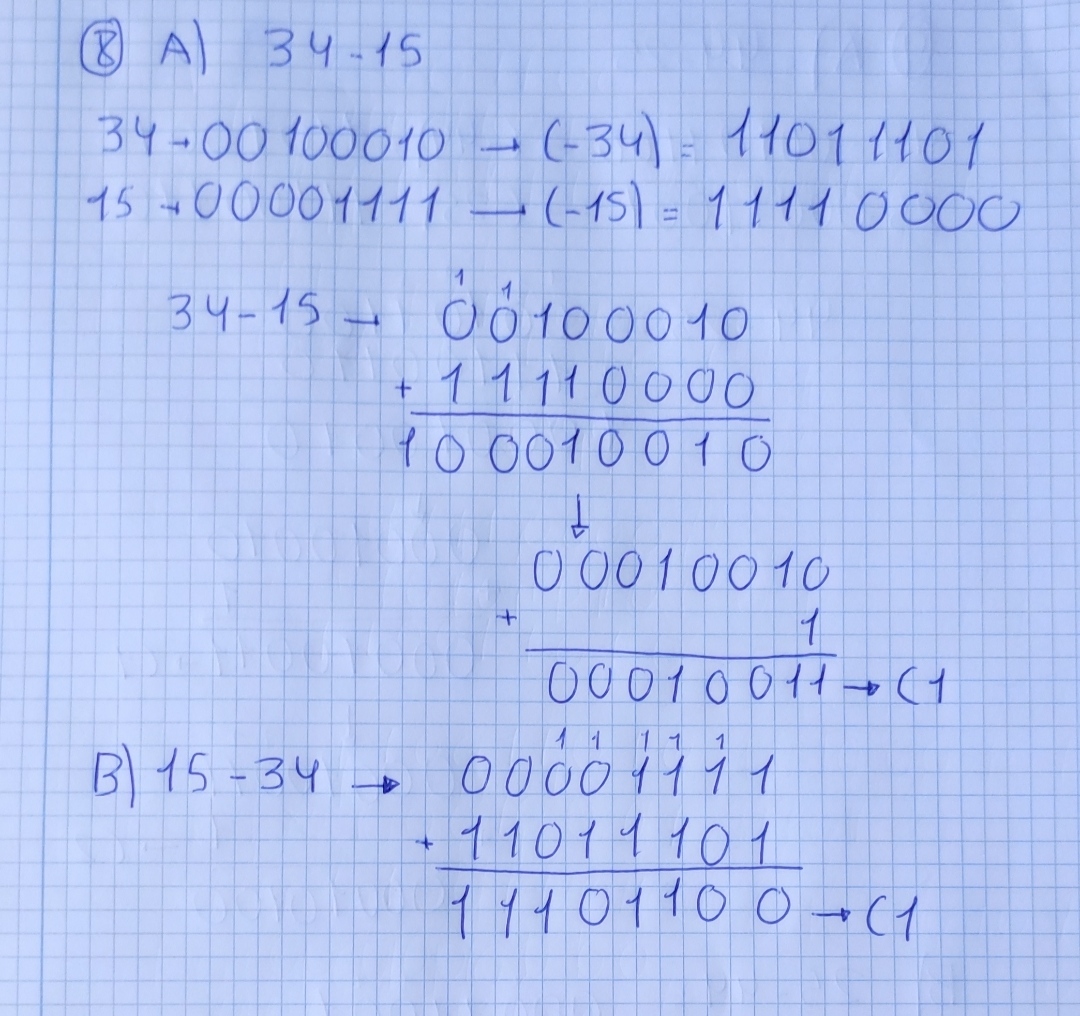 ⑧ A) 34-15
34→00100010 → (-34) = 11011101
15→00001111 → (-15) = 11110000
1 1
34-15 → 00100010
+ 11110000
100010010
↓
00010010
+ 1
00010011 → C1
1 1 1 1 1
B) 15-34 → 00001111
+ 11011101
11101100 → C1